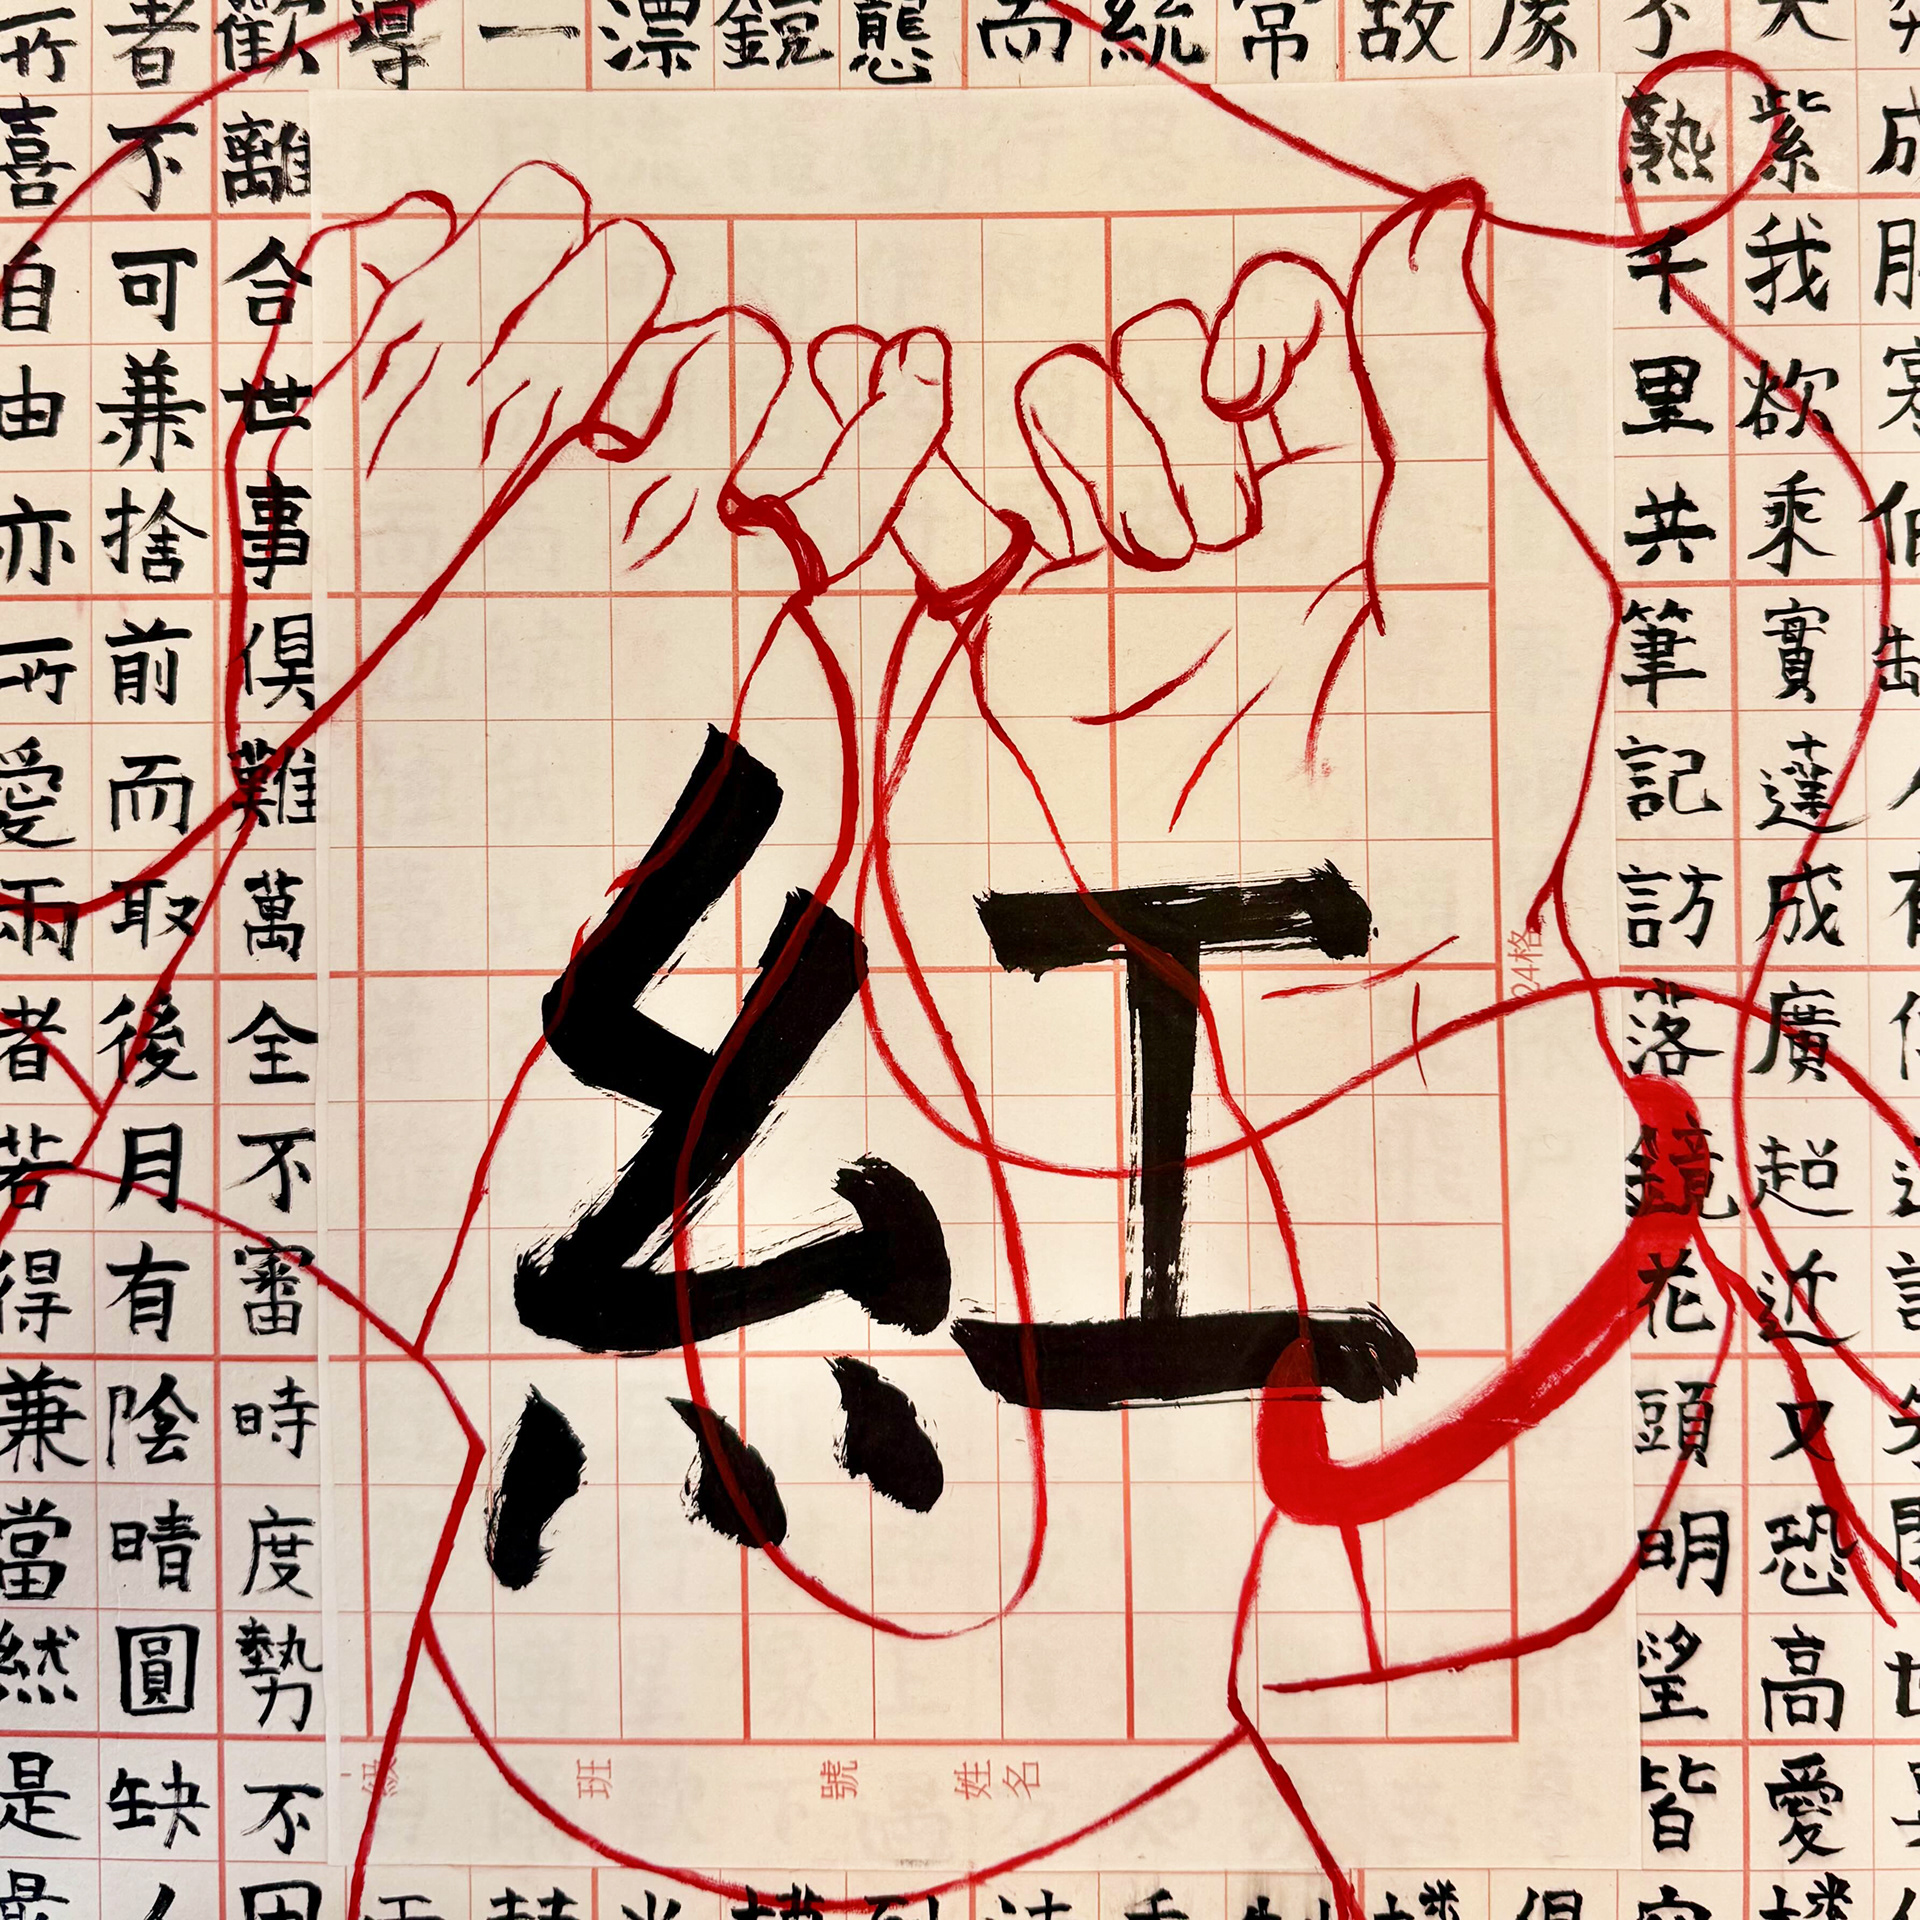 紫我欲乘實達成廣超近又恐高愛樓
不熟千里共筆記訪落鏡花頭明望皆
故
常
統
而
態
鏡
漂
一
導
紅
24格
級 班 號 姓名
歡離合世事俱難萬全不審時度勢不因
者不可兼捨前而取後月有陰晴圓缺人
所喜自由亦所愛兩者若得兼當然是最